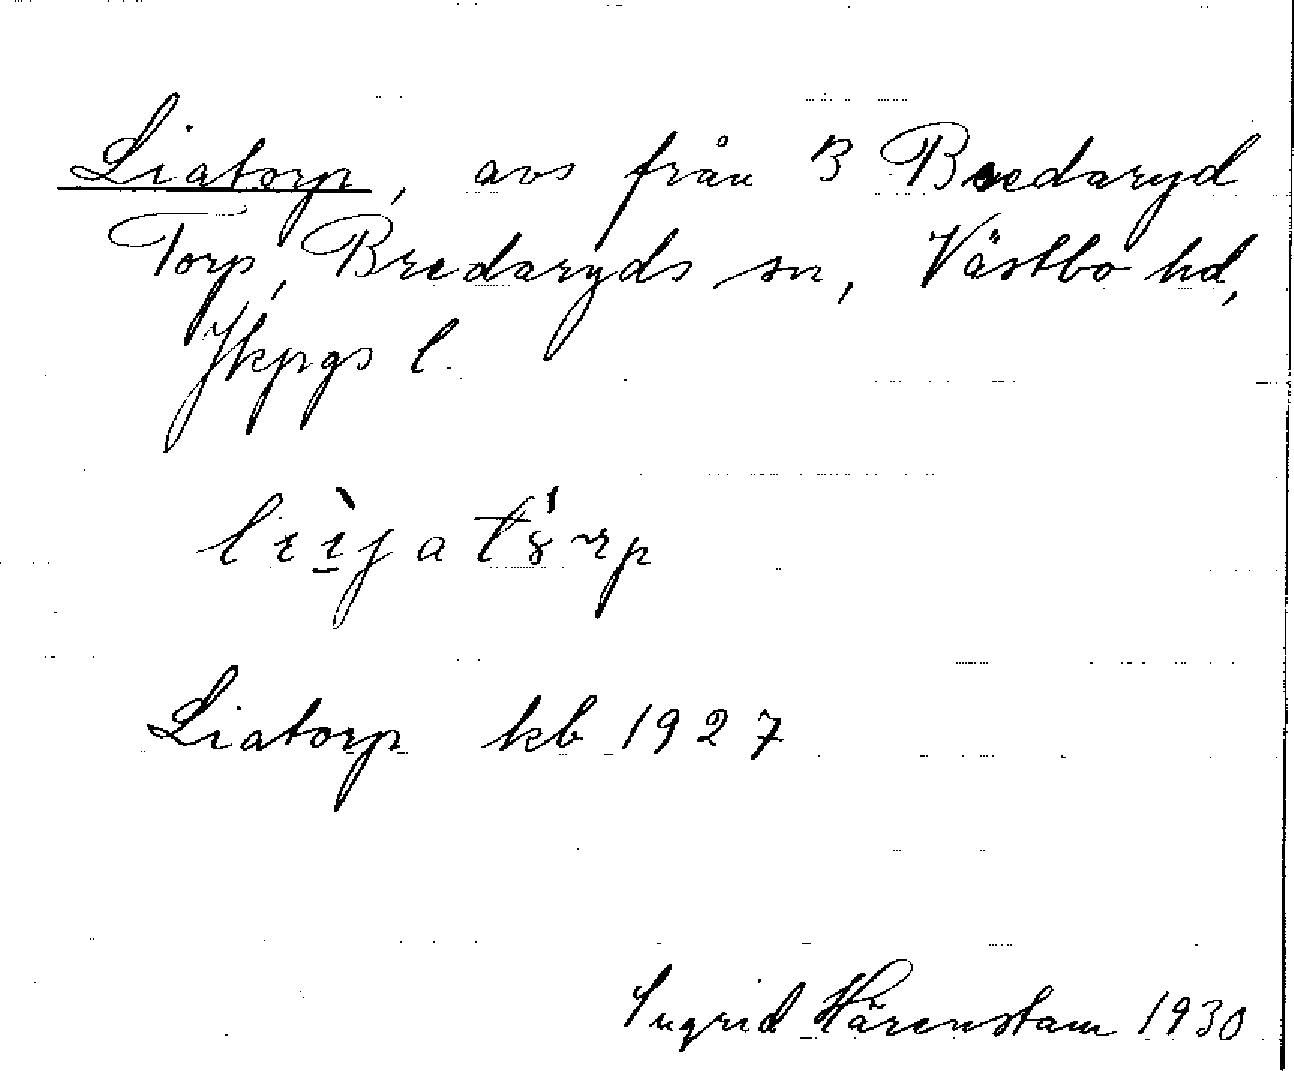 Liatorp, avs från B Bredaryd
Torp, Bredaryds sn, Västbo hd,
Jkpgs l.
Liatorp kb 1927
Ingrid Härenstam 1930